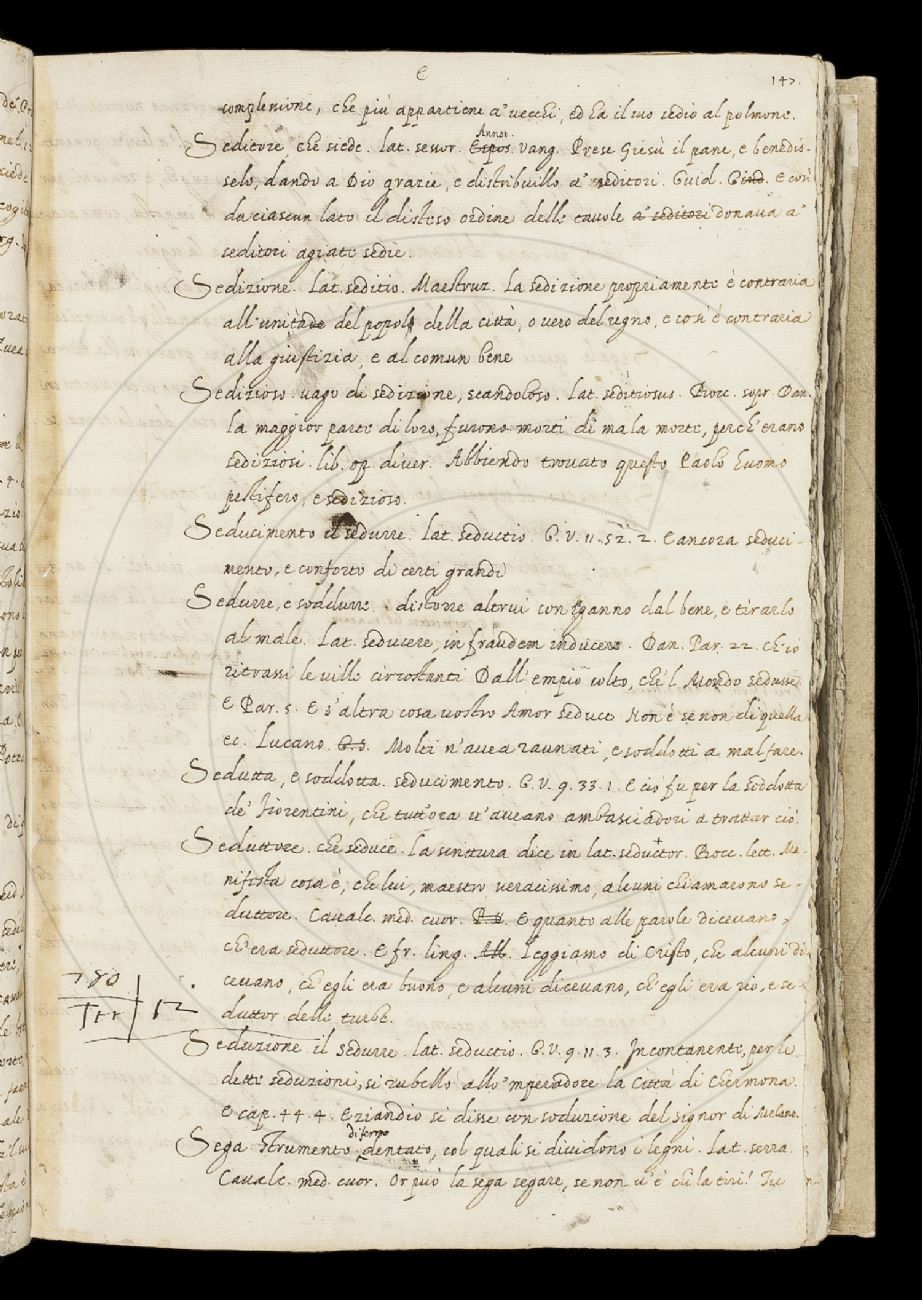 E
147.
complenione, che più appartiene a' vecchi, ed ha il suo sedio al polmone.
Seditore che siede. Lat. sessor. Espos. Annot. Vang. Prese Giesù il pane, e benedis-
selo, dando a Dio grazie, e distribuillo a' seditori. Guid. e così
da ciascun lato il disteso ordine delle tavole a' seditori donava a'
seditori agiate sedie.
Sedizione. Lat. seditio. Maestruz. La sedizione propriamente è contraria
all'unitade del popolo della città, o vero del regno, e così è contraria
alla giustizia, e al comun bene
Sedizioso. vago di sedizione, scandoloso. Lat. seditiosus. Bocc. sopr. Dan.
la maggior parte di loro, furono morti di mala morte, perch'erano
sediziosi. lib. op. diver. Abbiendo trovato questo Paolo huomo
pestifero, e sedizioso.
Seducimento il sedurre. Lat. seductio. G. V. 11. 52. 2. E ancora seduci-
mento, e conforto di certi grandi
Sedurre, e soddurre. distorre altrui con inganno dal bene, e tirarlo
al male. Lat. seducere, in fraudem inducere. Dan. Par. 22. Ch'io
ritrassi le ville circostanti Dall'empio colto, che'l Mondo sedusse
E Par. 5. E s'altra cosa vostro Amor seduce Non è se non di quella
ec. Lucano. G. S. Molti n'avea raunati, e soddotti a mal fare.
Sedutta, e soddotta. seducimento. G. V. 9. 33. 1. E ciò fu per la soddotta
de' Fiorentini, che tutt'ora v'aveano ambasciadori a trattar ciò.
Seduttore. che seduce. La scrittura dice in lat. seductor. Bocc. lett. Ma-
nifesta cosa è, che lui, maestro veracissimo, alcuni chiamarono se-
duttore. Cavalc. med. cuor. E quanto alle parole dicevano,
ch'era seduttore. E fr. ling. Leggiamo di Cristo, che alcuni di-
cevano, ch'egli era buono, e alcuni dicevano, ch'egli era rio, e se-
duttor delle turbe.
Seduzione il sedurre. Lat. seductio. G. V. 9. 11. 3. Incontanente, per le
dette seduzioni, si rubellò allo 'mperadore la Città di Chermona.
E cap. 44. 4. Eziandio si disse con soduzione del signor di Melano.
Sega. Strumento di ferro dentato, col quale si dividono i legni. Lat. serra
Cavalc. med. cuor. Or può la sega segare, se non v'è chi la tiri?